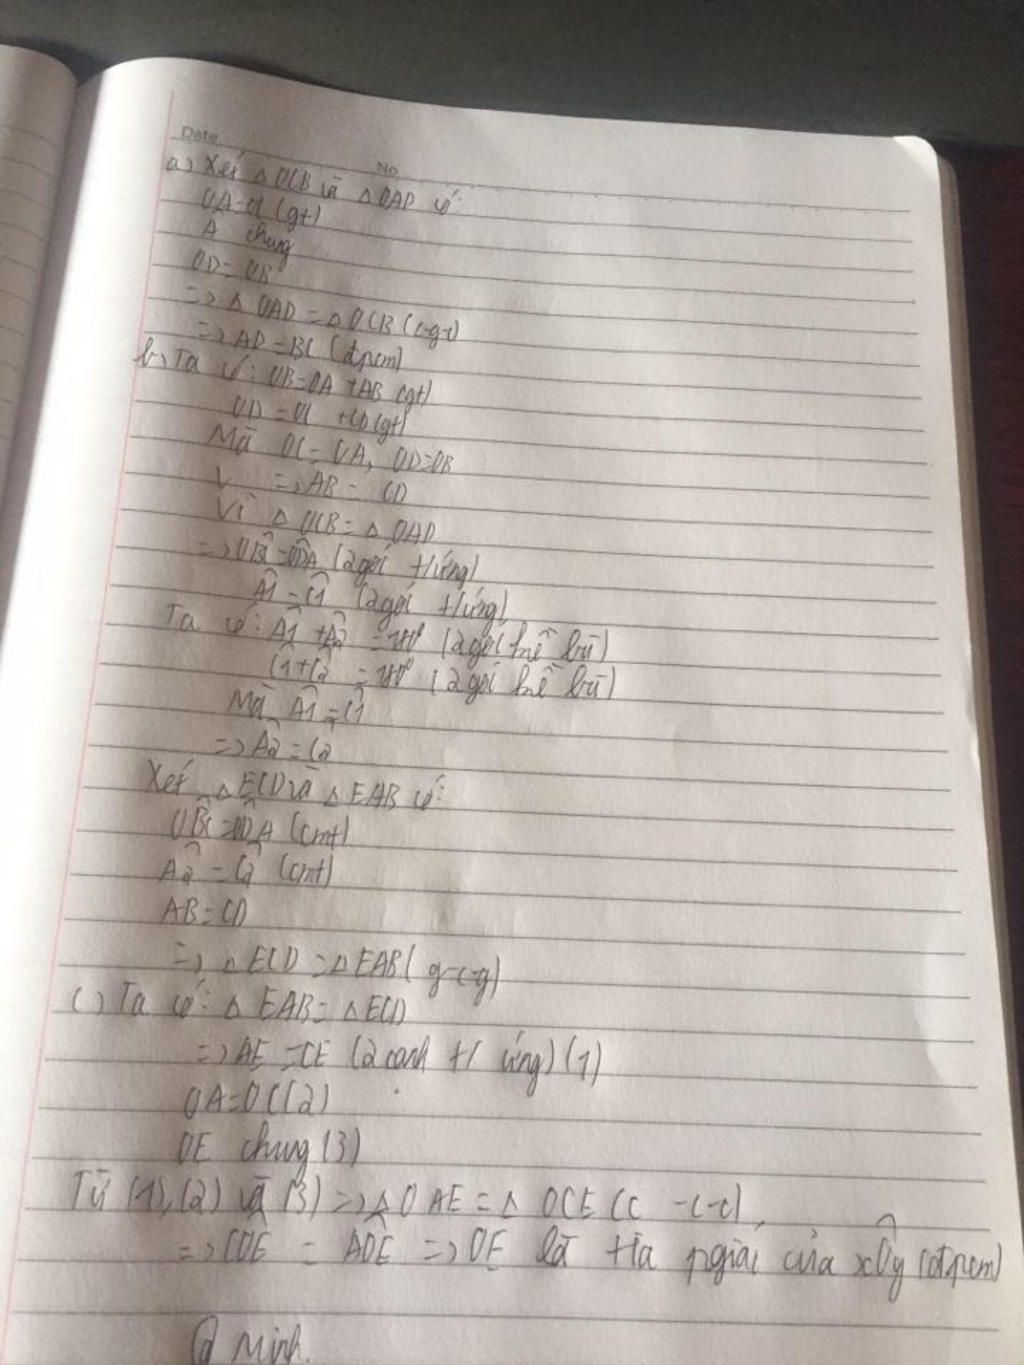 Date
No
a) Xét △OCB và △OAD có:
OA=OC (gt)
A chung
OD=OB
=> △OAD = △OCB (c-g-c)
=> AD=BC (đpcm)
b) Ta có: OB=OA+AB (gt)
OD=OC+CD (gt)
Mà OC=OA, OD=OB
=> AB=CD
Vì △OCB=△OAD
=> OBC=ODA (2 góc t/ứng)
A1=C1 (2 góc t/ứng)
Ta có: A1+A2=180° (2 góc kề bù)
C1+C2=180° (2 góc kề bù)
Mà A1=C1
=> A2=C2
Xét △ECD và △EAB có:
OBC=ODA (cmt)
A2=C2 (cmt)
AB=CD
=> △ECD=△EAB (g-c-g)
c) Ta có: △EAB=△ECD
=> AE=CE (2 cạnh t/ứng) (1)
OA=OC (2)
OE chung (3)
Từ (1), (2) và (3) => △OAE=△OCE (c-c-c)
=> COE = AOE => OE là tia pgiác của xOy (đpcm)
@ Minh.